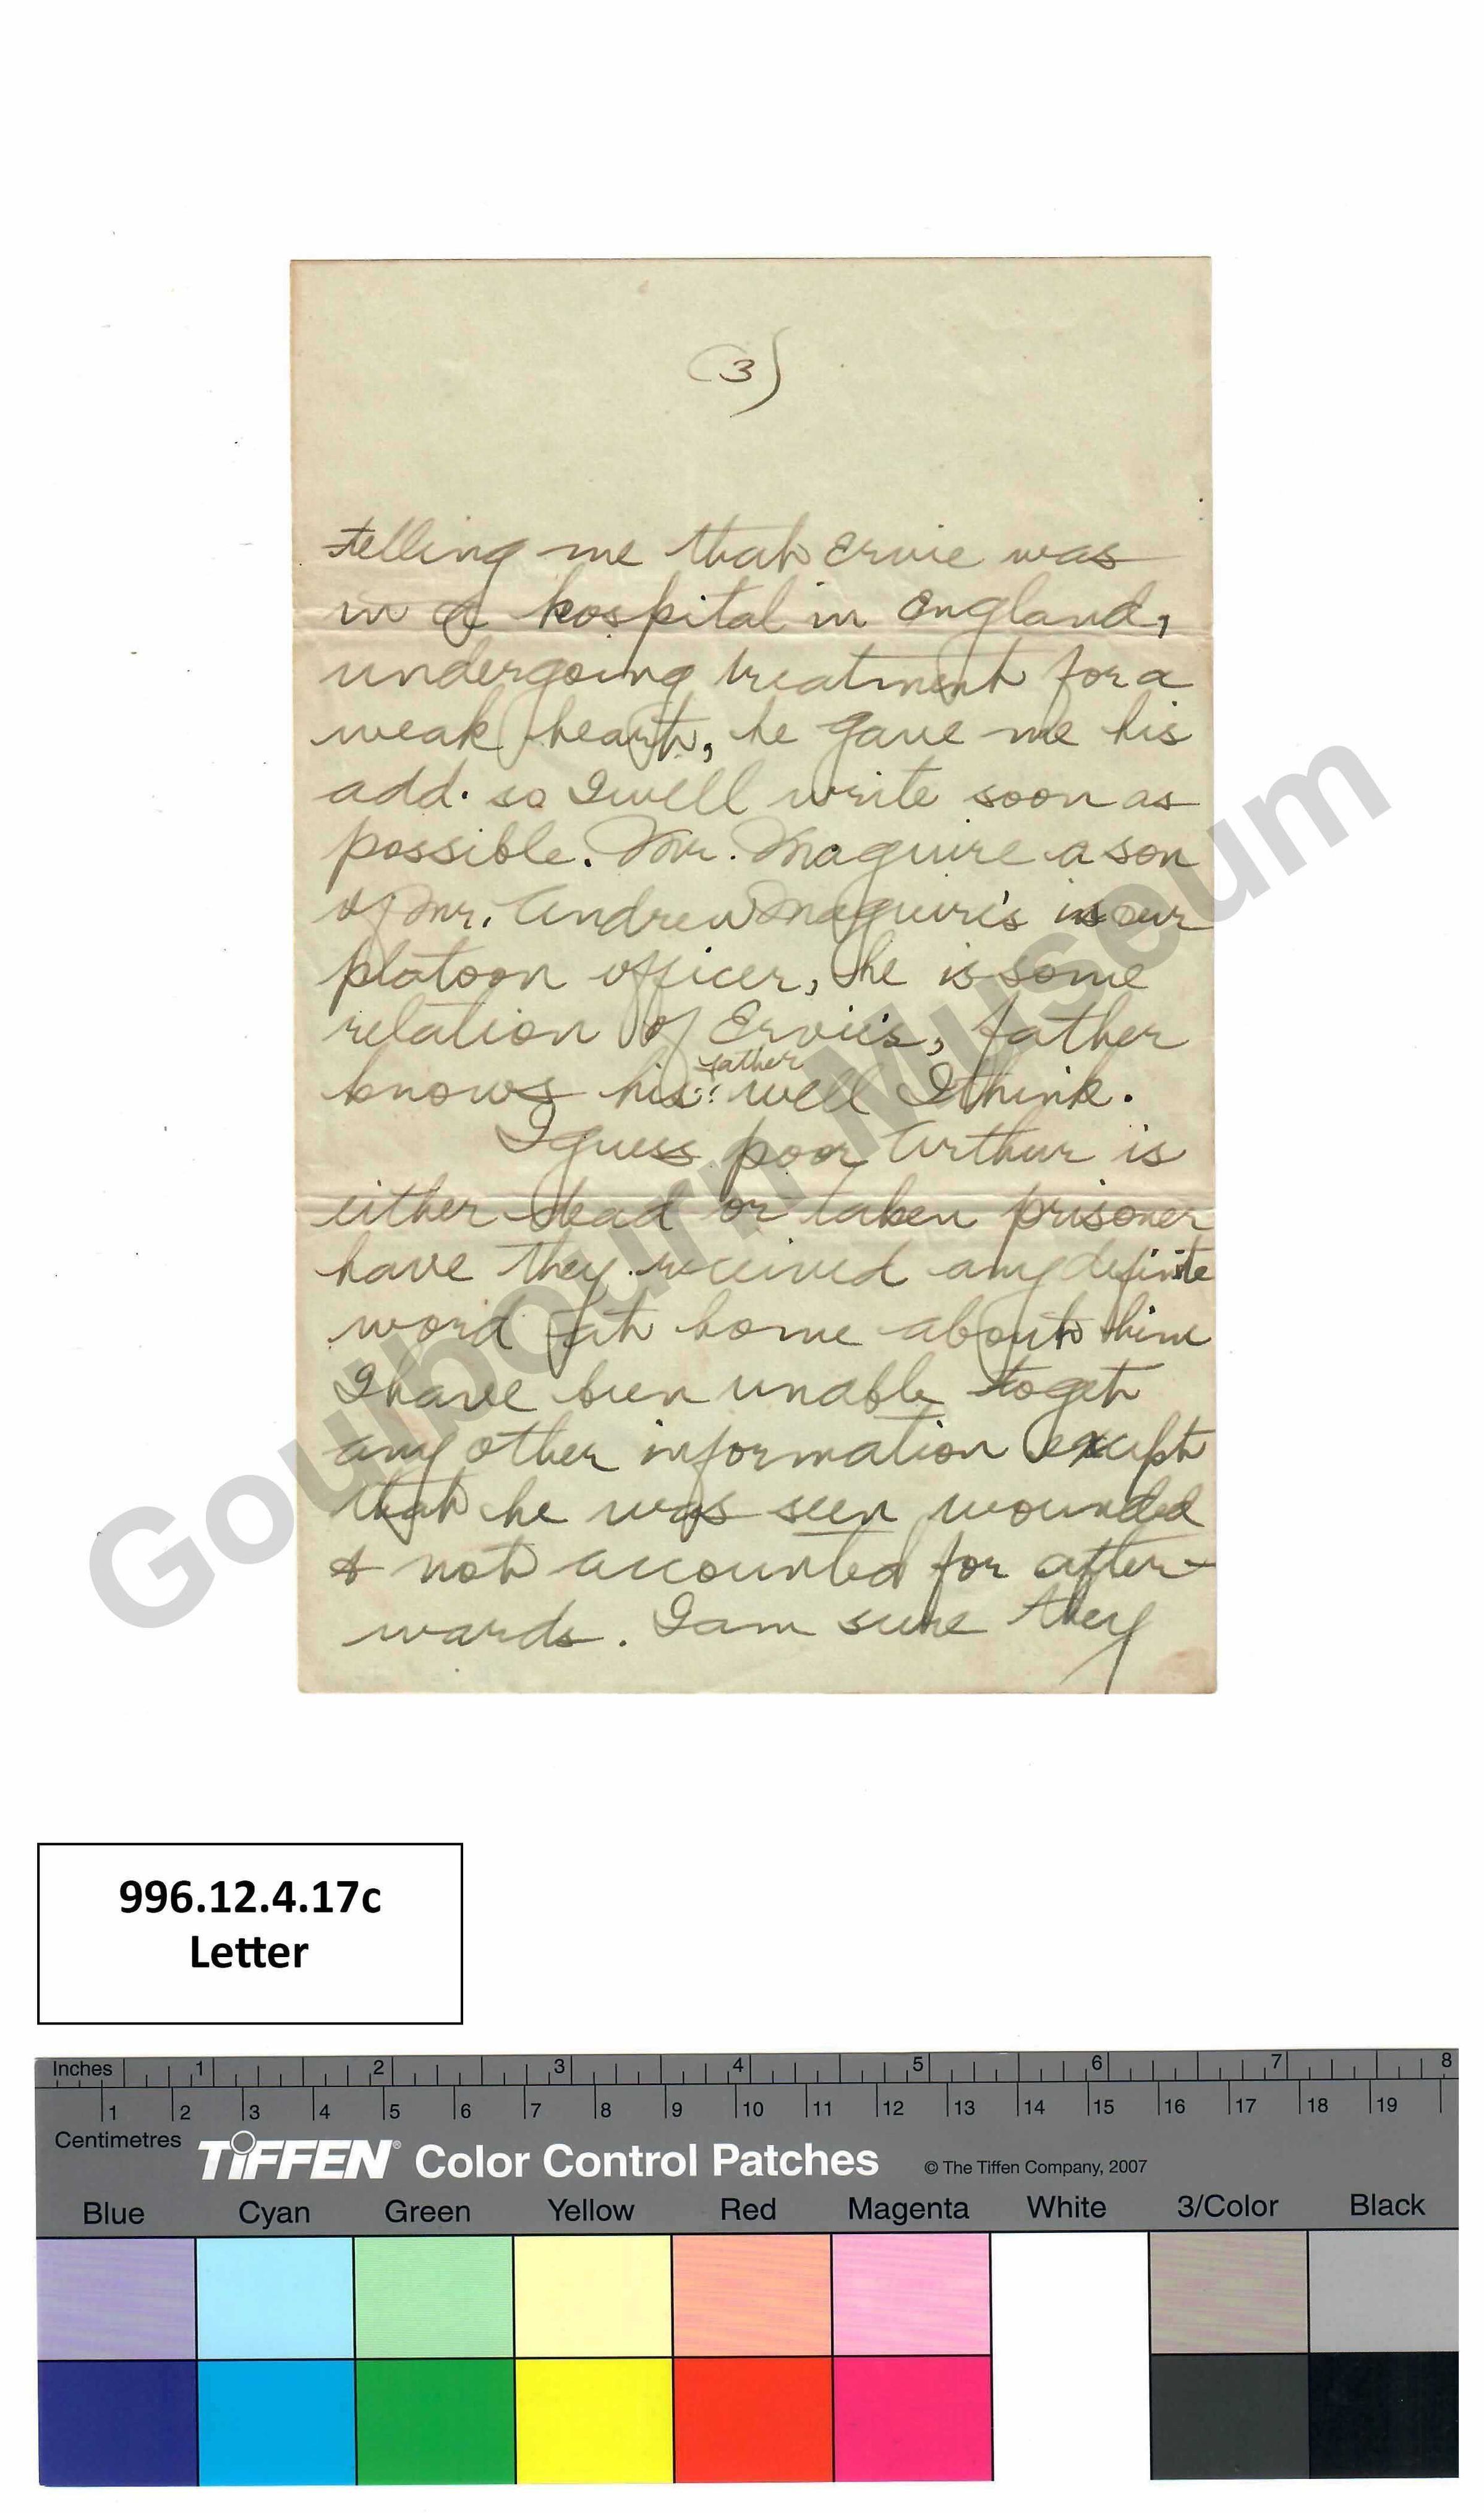 (3)
telling me that Ervie was
in a hospital in England,
undergoing treatment for a
weak heart, he gave me his
add. so I will write soon as
possible. Mr. Maguire a son
of Mr. Andrew Maguire's is our
platoon officer, he is some
relation of Ervie's, father
knows his father well I think.
I guess poor Arthur is
either dead or taken prisoner
have they received any definite
word at home about him
I have been unable to get
any other information except
that he was seen wounded
& not accounted for after-
wards. I am sure they
Goulbourn Museum
996.12.4.17c
Letter
Inches 1 2 3 4 5 6 7 8
1 2 3 4 5 6 7 8 9 10 11 12 13 14 15 16 17 18 19
Centimetres
TIFFEN® Color Control Patches © The Tiffen Company, 2007
Blue Cyan Green Yellow Red Magenta White 3/Color Black